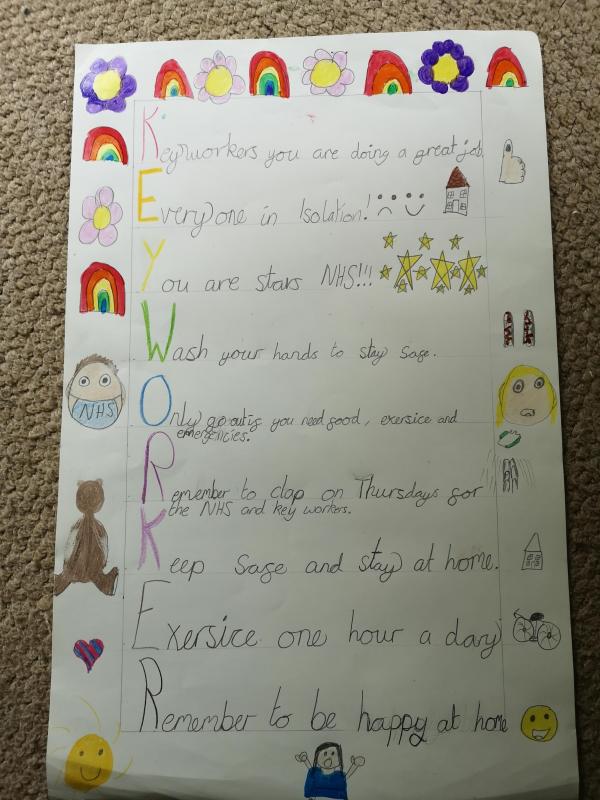 Keyworkers you are doing a great job
Everyone in Isolation!
You are stars NHS!!!
Wash your hands to stay safe.
NHS
Only go out if you need food, exersice and
emergencies.
Remember to clap on Thursdays for
the NHS and key workers.
Keep safe and stay at home.
Exersice one hour a day
Remember to be happy at home